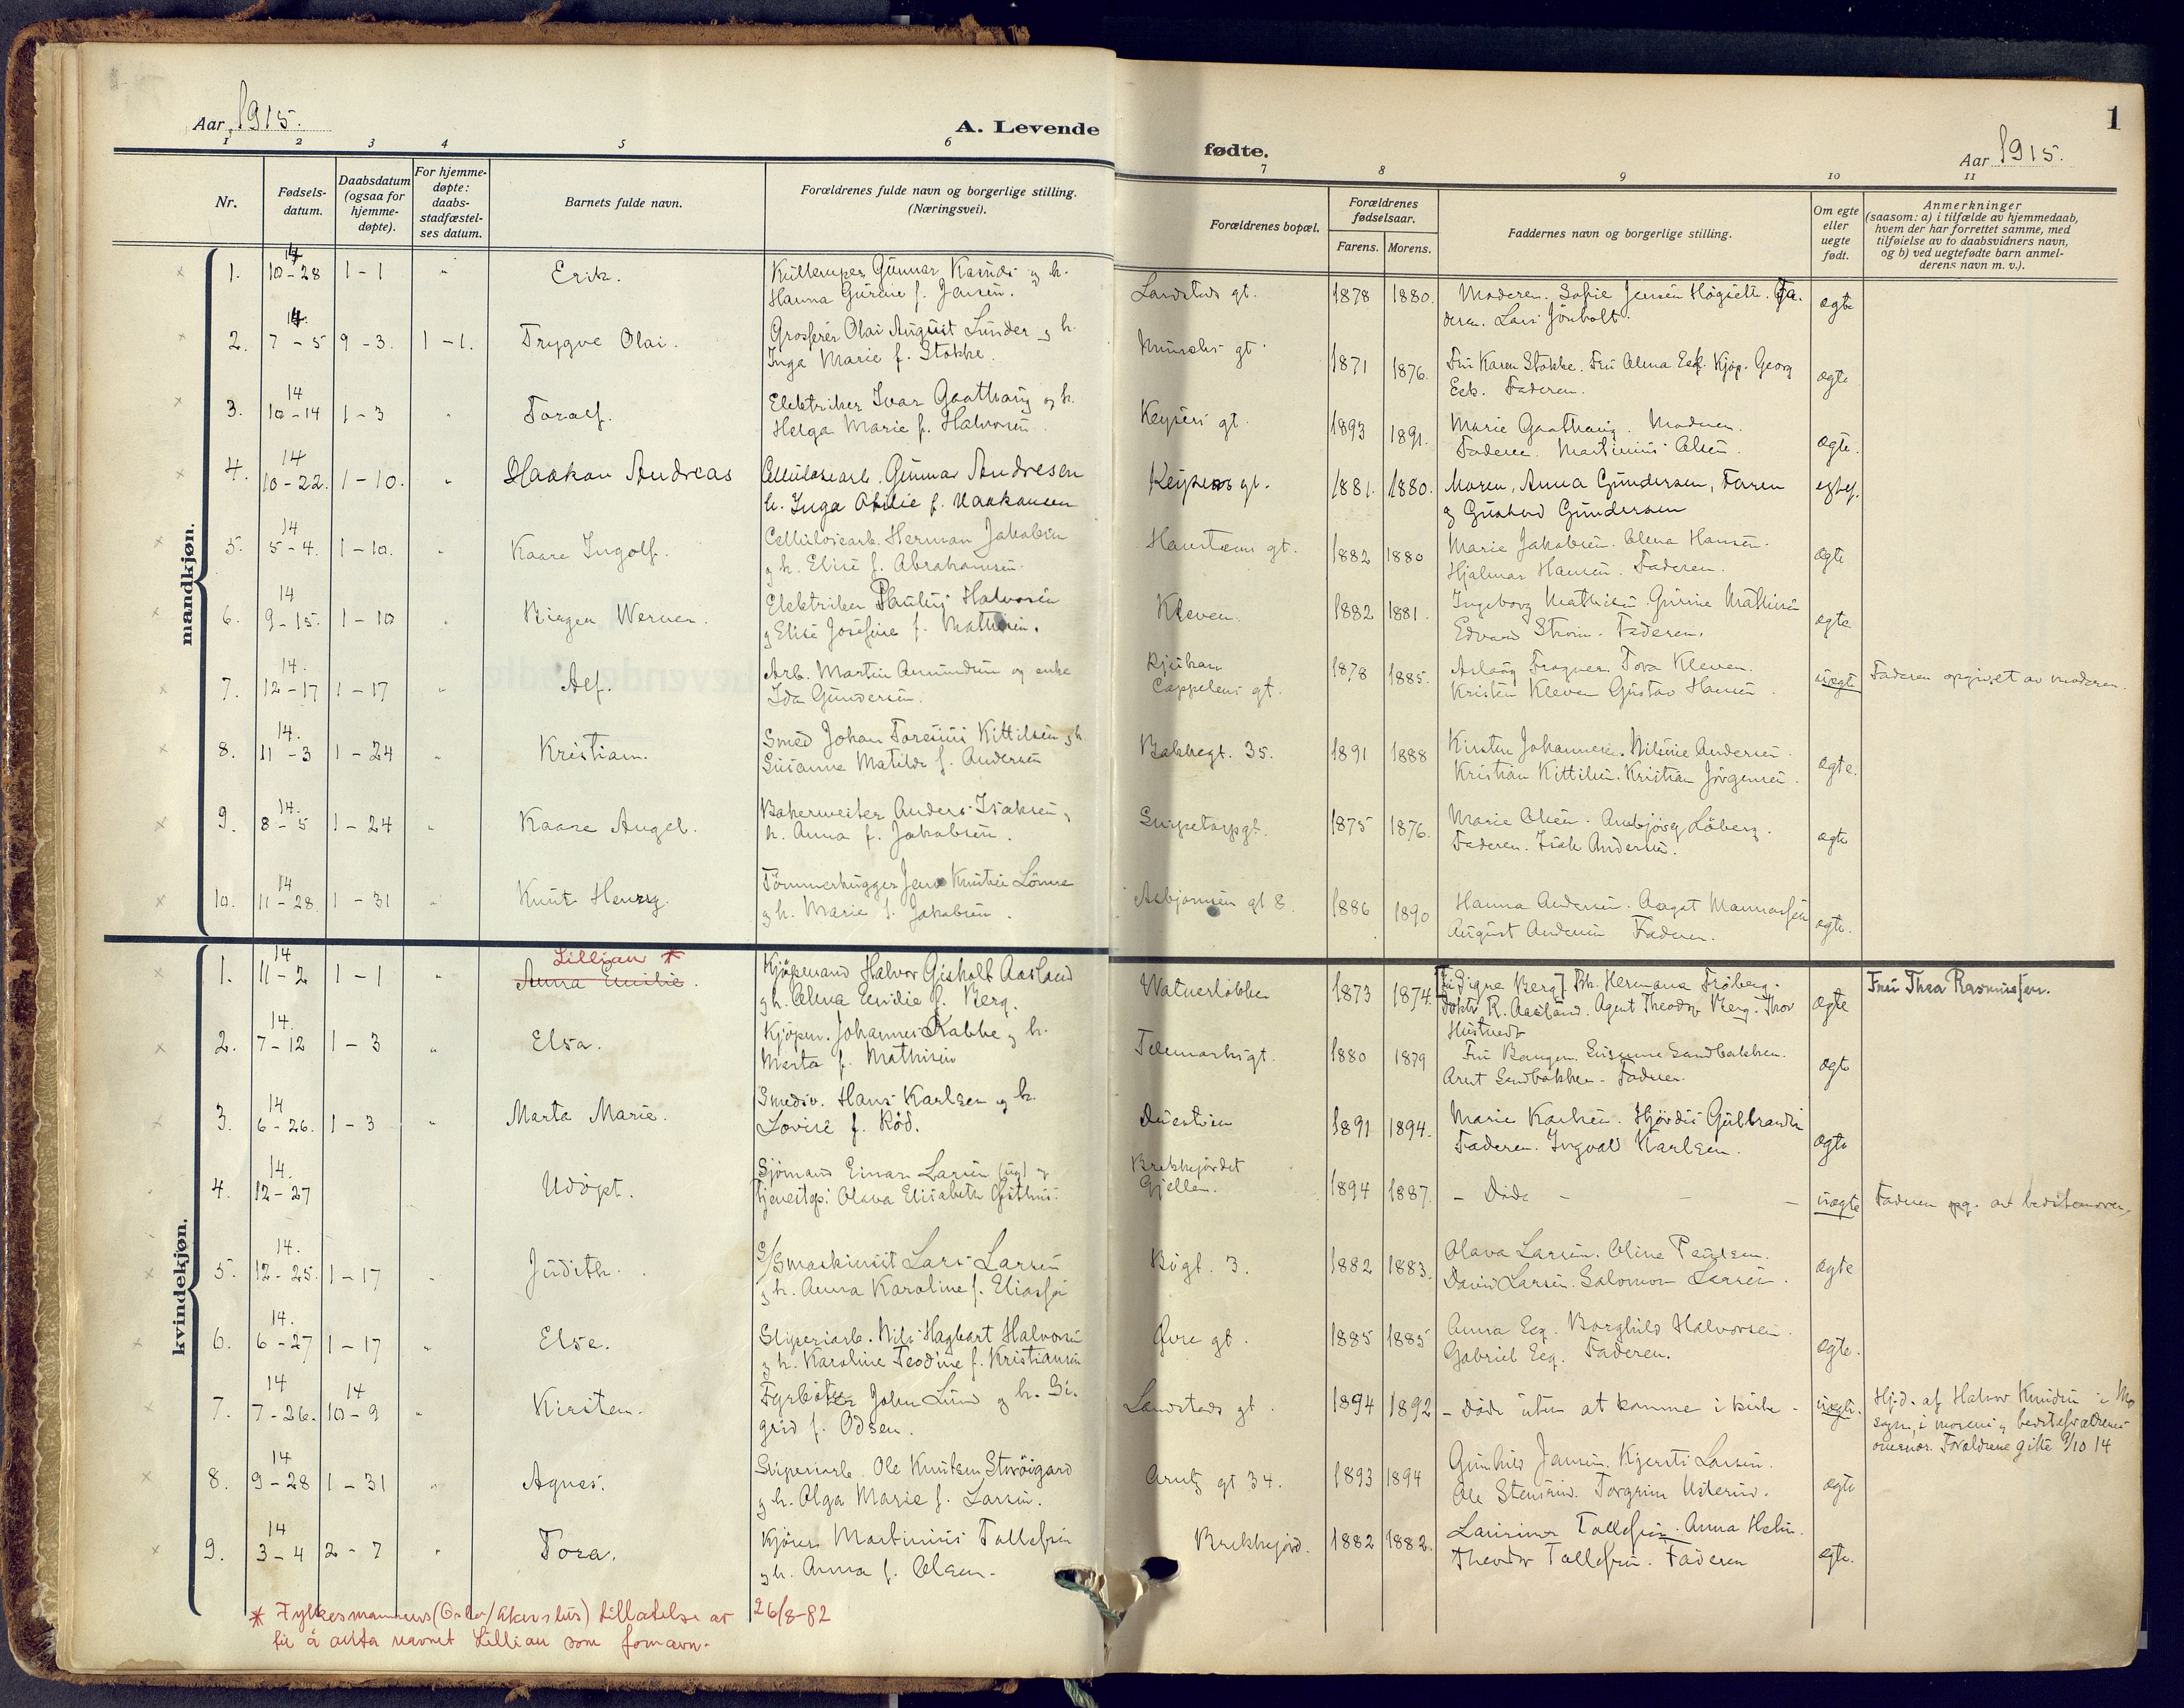 1
Aar 1915.
A. Levende
fødte.
Aar 1915.
1 2 3 4 5 6 7 8 9 10 11
Nr.
Fødsels-
datum.
Daabsdatum
(ogsaa for
hjemme-
døpte).
For hjemme-
døpte:
daabs-
stadfæstel-
ses datum.
Barnets fulde navn.
Forældrenes fulde navn og borgerlige stilling.
(Næringsvei).
Forældrenes bopæl.
Forældrenes
fødselsaar.
Farens. Morens.
Faddernes navn og borgerlige stilling.
Om egte
eller
uegte
født.
Anmerkninger
(saasom: a) i tilfælde av hjemmedaab,
hvem der har forrettet samme, med
tilføielse av to daabsvidners navn,
og b) ved uegtefødte barn anmel-
derens navn m. v.).
mandkjøn.
14
1. 10-28 1-1 " Erik. Gunnar og h. Landstads gt. 1878 1880. Moderen. Sofie Jensen Fa- egte
Hanna Gurine f. Jensen. deren. Lars Jönholt
14
2. 7-5 9-3. 1-1. Trygve Olai. Grosserer Olai August Lunder og h. Munchs gt. 1871 1876. Fru Karen Stokke. Fru Olena Eek. Kjøp. Georg egte
Inga Marie f. Stokke. Eek. Faderen.
14
3. 10-14 1-3 " Toralf. Elektriker Ivar Gaathaug og h. Keysers gt. 1893 1891. Marie Gaathaug. Moderen. egte.
Helga Marie f. Halvorsen. Faderen. Martinius Olsen.
14
4. 10-22. 1-10. " Haakon Andreas Cellulosearb. Gunnar Andresen Keysers gt. 1881. 1880. Moren, Anna Gundersen, Faren
h. Inga Otilie f. Haakansen og Gundersen
14
5. 5-4. 1-10. " Kaare Ingolf. Cellulosearb. Herman Jakobsen Hansteens gt. 1882 1880 Marie Jakobsen. Olena Hansen. egte
og h. Elise f. Abrahamsen. Hjalmar Hansen. Faderen.
14
6. 9-15. 1-10 " Birger Werner. Elektriker Paulus Halvorsen Kleven. 1882 1881. Ingeborg Mathisen. Gurine Mathisen egte
og Elise Josefine f. Mathisen. Edvard Strøm. Faderen.
14.
7. 12-17 1-17 " Alf. Arb. Martin Amundsen og enke Rjukan 1878 1885. Aslaug Fragner. Tora Kleven. uegte Faderen opgivet av moderen.
Ida Gundersen. Cappelens gt. Kristen Kleven Gustav Hansen.
14.
8. 11-3 1-24 " Kristian. Smed Johan Kittilsen og h. Bakkegt. 35. 1891 1888 Kirsten Johannesen. Andersen. egte.
Susanne Matilde f. Andersen Kristian Kittilsen. Kristian Jörgensen.
14.
9. 8-5 1-24 " Kaare Angel. Bakermester Anders Isaksen, Snipetorpgt. 1875 1876. Marie Olsen. Løberg. egte
h. Anna f. Jakobsen. Faderen. Isak Andersen.
14
10. 11-28. 1-31 " Knut Henry. Tømmerhugger Jens Knutsen Lönne Asbjørnsen gt 8. 1886 1890 Hanna Andersen. Aagot egte.
og h. Marie f. Jakobsen. August Andersen Faderen.
kvindekjøn.
Lillian *
14
1. 11-2 1-1 " Anna Emilie. Kjøpmand Halvor Gisholt Aasland 1873 1874. [Fru Signe Berg] Frk. Hermana Fröberg. egte Fru Thea Rasmussen.
og h. Olina Emilie f. Berg. Doktor R. Aasland. Agent Theodor Berg. Thor
14. Hustvedt
2. 7-12 1-3 " Elsa. Kjøpm. Johannes Rabbe og h. Telemarksgt. 1880 1879 Fru Bangen. Susanne Sandbakken. egte
Marta f. Mathisen Arnt Sandbakken. Faderen.
14
3. 6-26. 1-3 " Marta Marie. Smedsv. Hans Karlsen og h. 1891 1894. Marie Karlsen. Hjördis egte
Lovise f. Röd. Faderen. Ingvald Karlsen.
14.
4. 12-27 Udöpt. Sjömand Einar Larsen (ug) og Brekkejordet 1894 1887. - Döde - - - uegte Faderen opg. av bedstemoren.
tjenestep. Olava Elisabeth Gjellen.
14.
5. 12-25. 1-17 " Judith. S/S maskinist Lars Larsen Bögt. 3. 1882 1883. Olava Larsen. Oline Paulsen. egte
og h. Anna Karoline f. Eliassen David Larsen. Salomon Larsen.
14.
6. 6-27 1-17 " Else. Sliperiarb. Nils Hagbart Halvorsen Øvre gt. 1885 1885 Anna Eeg. Borghild Halvorsen. egte.
og h. Karoline Teodine f. Kristiansen Gabriel Eeg. Faderen.
14 14
7. 7-26. 10-9 " Kirsten. Fyrbøter John Lund og h. Si- Landstads gt. 1894 1892 - Döde uten at komme i kirke - uegte. Hj.d. af Halvor Knudsen i
grid f. Odsen. sogn, i morens og bedsteforældrenes
overvær. Forældrene gifte 9/10 14
14
8. 9-28 1-31 " Agnes. Sliperiarb. Ole Knutsen Arntz gt 34. 1893 1894 Gunhild Jansen. Kjersti Larsen. egte
og h. Olga Marie f. Larsen. Ole Stensrud. Torgrim
14
9. 3-4 2-7 " Tora. Kjører Martinius Tollefsen Brekkejord. 1882 1882. Tollefsen. Anna Holm. egte.
og h. Anna f. Olsen. Theodor Tollefsen. Faderen
* Fylkesmannens (Oslo/Akershus) tillatelse av 26/8-82
til å anta navnet Lillian som fornavn.